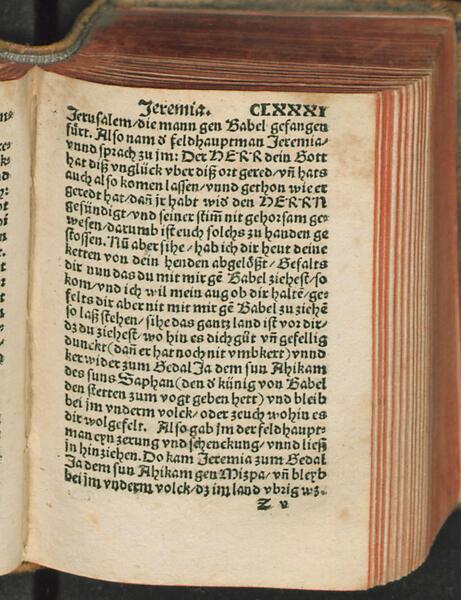 Jeremia. CLXXXI
Jerusalem/ die mann gen Babel gefangen
fürt. Also nam d̕ feldhauptman Jeremia/
vnnd sprach zu jm: Der HERR dein Gott
hat diß vnglück vber diß ort gered/ vñ hats
auch also komen lassen/ vnnd gethon wie er
geredt hat/ dañ jr habt wid̕ den HERRN
gesündigt/ vnd seiner stim̃ nit gehorsam ge-
wesen/ darumb ist euch solchs zu handen ge
stossen. Nũ aber sihe/ hab ich dir heut deine
ketten von dein henden abgelößt/ Gefalts
dir nun das du mit mir gẽ Babel ziehest/ so
kom/ vnd ich wil mein aug ob dir haltẽ/ ge-
felts dir aber nit mit mir gẽ Babel zu ziehẽ
so laß stehen/ sihe das gantz land ist vor dir/
dz du ziehest/ wo hin es dich gůt vñ gefellig
dunckt (dañ er hat noch nit vmbkert) vnnd
ker wider zum Gedal Ja dem sun Ahikam
des suns Saphan (den d̕ künig von Babel
den stetten zum vogt geben hett) vnd bleib
bei jm vnderm volck/ oder zeuch wohin es
dir wolgefelt. Also gab jm der feldhaupt-
man eyn zerung vnd schenckung/ vnnd ließ
jn hinziehen. Do kam Jeremia zum Gedal
Ja dem sun Ahikam gen Mizpa/ vñ bleyb
bei jm vnderm volck/ dz im land vbrig wz.
Z v